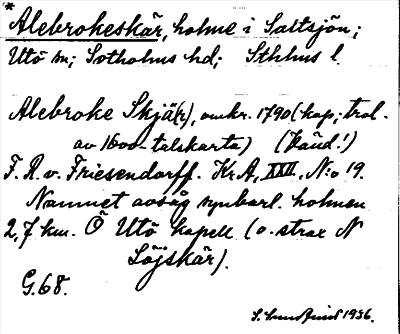 * Alebrokeskär, holme i Saltsjön;
Utö sn; Sotholms hd; Sthlms l.
Alebroke Skjä(r), omkr. 1790 (kop; trol.
av 1600-talskarta) (händ!)
F. R. v. Friesendorff. Kr.A, XXII, N:o 19.
Namnet avsåg synbarl. holmen
2,7 km. Ö Utö kapell (o. strax N
Löjskär).
G.68.
1936.